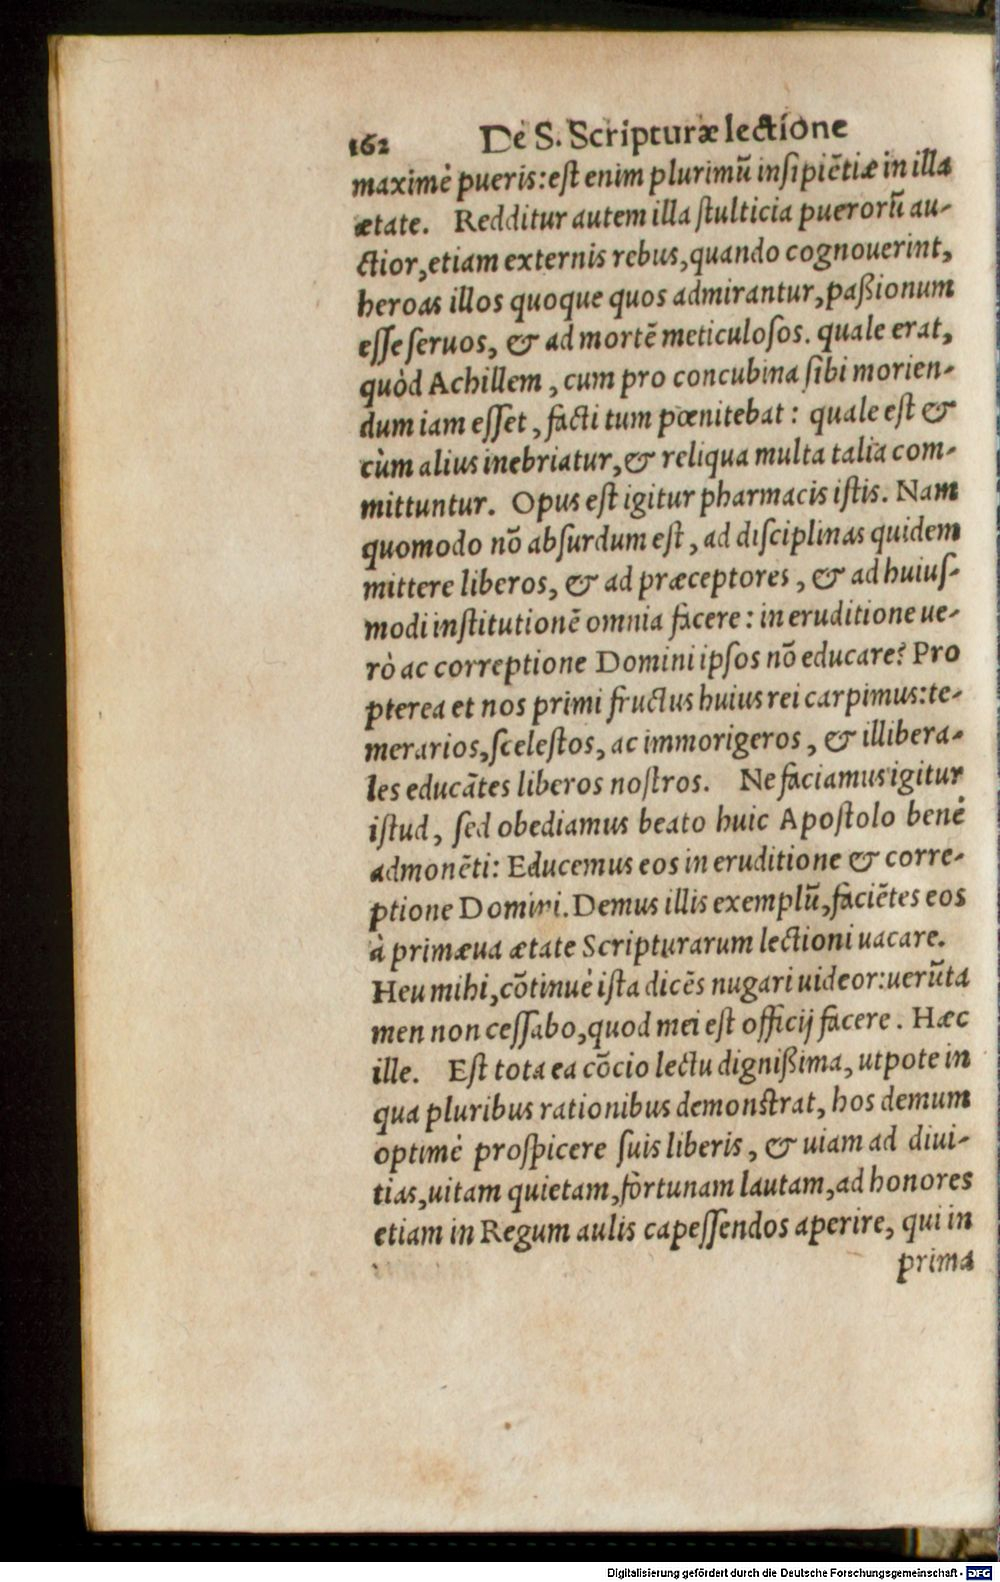 162 De S. Scripturæ lectione
maximè pueris: est enim plurimū insipiētiæ in illa
ætate. Redditur autem illa stulticia puerorū au-
ctior, etiam externis rebus, quando cognouerint,
heroas illos quoque quos admirantur, paßionum
esse seruos, & ad mortē meticulosos. quale erat,
quòd Achillem, cum pro concubina sibi morien-
dum iam esset, facti tum pœnitebat: quale est &
cùm alius inebriatur, & reliqua multa talia com-
mittuntur. Opus est igitur pharmacis istis. Nam
quomodo nō absurdum est, ad disciplinas quidem
mittere liberos, & ad præceptores, & ad huius-
modi institutionē omnia facere: in eruditione ue-
rò ac correptione Domini ipsos nō educare? Pro
pterea et nos primi fructus huius rei carpimus: te-
merarios, scelestos, ac immorigeros, & illibera-
les educātes liberos nostros. Ne faciamus igitur
istud, sed obediamus beato huic Apostolo benè
admonēti: Educemus eos in eruditione & corre-
ptione Domini. Demus illis exemplū, faciētes eos
à primæua ætate Scripturarum lectioni uacare.
Heu mihi, cōtinuè ista dicēs nugari uideor: uerūta
men non cessabo, quod mei est officij facere. Hæc
ille. Est tota ea cōcio lectu dignißima, utpote in
qua pluribus rationibus demonstrat, hos demum
optimè prospicere suis liberis, & uiam ad diui-
tias, uitam quietam, fortunam lautam, ad honores
etiam in Regum aulis capessendos aperire, qui in
prima
Digitalisierung gefördert durch die Deutsche Forschungsgemeinschaft - DFG